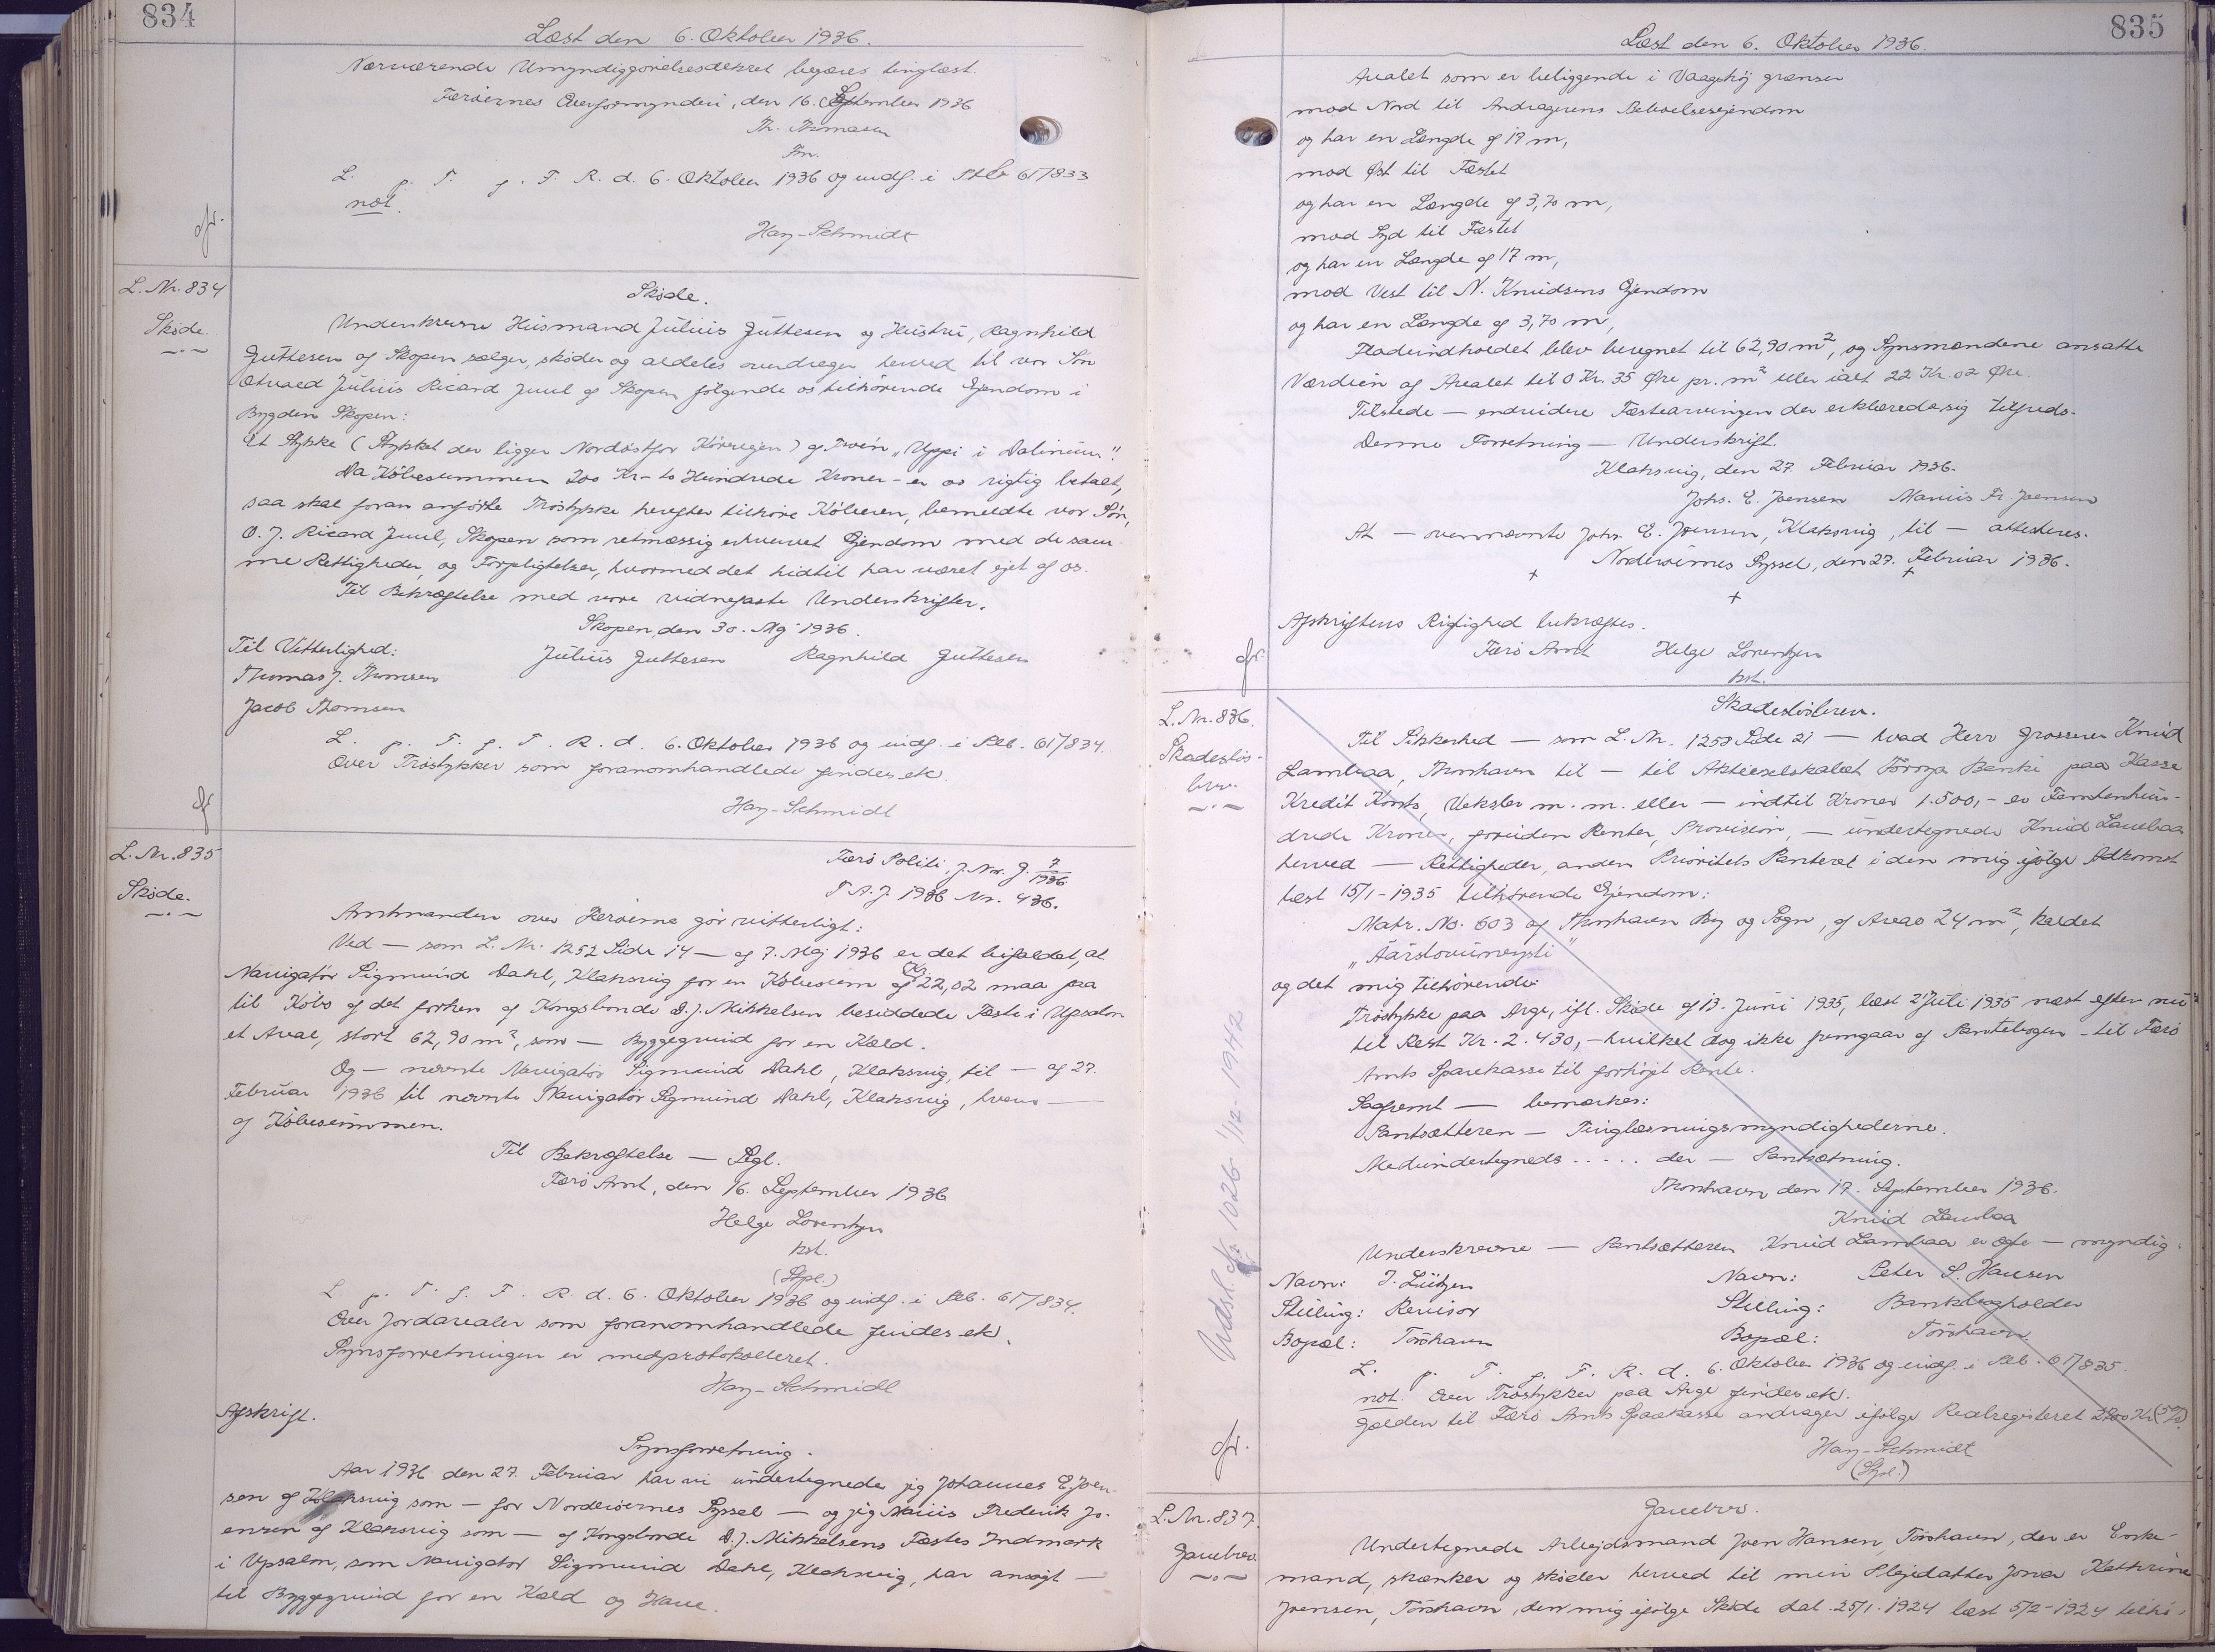 834
Læst den 6. Oktober 1936.
Nærværende Umyndiggørelsesdekret begæres tinglæst.
Færøernes Overformynderi, den 16. September 1936
Th. Thomasen
Fm.
L. p. T. f. F. R. d. 6. Oktober 1936 og indf. i Stb 61/833
not.
Hay-Schmidt
L. Nr. 834
Skøde.
Skøde.
Underskrevne Husmand Julius Guttesen og Hustru, Ragnhild
Guttesen af Skopen sælger, skøder og aldeles overdrager herved til vor Søn
Ætvaed Julius Ricard Juul af Skopen følgende os tilhørende Ejendom i
Bygden Skopen:
Et Stykke (Stykket der ligger Nordøstfor Kørevejen) af Trøen "Uppi i Dalinum".
Da Købesummen 200 Kr - to Hundrede Kroner - er os rigtig betalt,
saa skal foran anførte Trøstykke herefter tilhøre Køberen, bemeldte vor Søn,
O. J. Ricard Juul, Skopen som retmæssig erhvervet Ejendom med de sam-
me Rettigheder og Forpligtelser, hvormed det hidtil har været ejet af os.
Til Bekræftelse med vore vidnefaste Underskrifter.
Skopen, den 30. Maj 1936.
Til Vitterlighed: Julius Guttesen Ragnhild Guttesen
Thomas J. Thomsen
Jacob Thomsen
L. p. T. f. F. R. d. 6. Oktober 1936 og indf. i Stb. 61/834.
Over Trøstykker som foranomhandlede findes ek.
Hay-Schmidt
L. Nr. 835
Skøde.
Færø Politi, J. Nr. G. 7/1936
F. A. J. 1936 Nr. 436.
Amtmanden over Færøerne gør vitterligt:
Ved — som L. Nr. 1252 Side 14 — af 7. Maj 1936 er det bifaldet, at
Navigatør Sigmund Dahl, Klaksvig for en Købesum af Kr. 22,02 maa faa
til Købs af det forhen af Kongsbonde D. J. Mikkelsen besiddede Fæste i Upsalon
et Areal, stort 62,90 m², som — Byggegrund for en Kæld.
Og — nævnte Navigatør Sigmund Dahl, Klaksvig, til — af 27.
Februar 1936 til nævnte Navigatør Sigmund Dahl, Klaksvig, hvem —
af Købesummen.
Til Bekræftelse — Segl.
Færø Amt, den 16. September 1936
Helge Lorentzen
kst.
(Stpl.)
L p. T. f. F. R. d. 6. Oktober 1936 og indf. i Stb. 61/834.
Over Jordarealer som foranomhandlede findes ek.
Synsforretningen er medprotokolleret.
Hay-Schmidt
Afskrift.
Synsforretning.
Aar 1936 den 27. Februar har vi undertegnede jeg Johannes E. Joen-
sen af Klaksvig som — for Norderøernes Syssel — og jeg Marius Frederik Jo-
ensen af Klaksvig som — af Kongsbonde D. J. Mikkelsens Fæstes Indmark
i Upsalon, som Navigatør Sigmund Dahl, Klaksvig, har ansøgt —
til Byggegrund for en Kæld og Have.
835
Læst den 6. Oktober 1936.
Arealet som er beliggende i Vaagehøj grænser
mod Nord til Andragerens Beboelsesejendom
og har en Længde af 17 m,
mod Øst til Fæstet
og har en Længde af 3,70 m,
mod Syd til Fæstet
og har en Længde af 17 m,
mod Vest til N. Knudsens Ejendom
og har en Længde af 3,70 m,
Fladeindholdet blev beregnet til 62,90 m², og Synsmændene ansatte
Værdien af Arealet til 0 Kr. 35 Øre pr. m² eller ialt 22 Kr. 02 Øre.
Tilstede — endvidere Fæstearvingen der erklærede sig tilfreds.
Denne Forretning — Underskrift.
Klaksvig, den 27. Februar 1936.
Johs. E. Joensen Marius Fr. Joensen
At — ovennævnte Johs. E. Joensen, Klaksvig, til — attesteres.
Norderøernes Syssel, den 27. Februar 1936.
Afskriftens Rigtighed bekræftes.
Færø Amt Helge Lorentzen
kst.
L. Nr. 836.
Skadesløs-
brev.
Skadesløsbrev.
Til Sikkerhed — som L. Nr. 1258 Side 21 — hvad Herr Grosserer Knud
Lambaa, Thorshavn til — til Aktieselskabet Føroya Banki paa Kasse
Kredit Konto, Veksler m. m. eller — indtil Kroner 1.500,- er Femtenhun-
drede Kroner, foruden Renter, Provision, — undertegnede Knud Lambaa
herved — Rettigheder, anden Prioritets Panteret i den mig ifølge Adkomst
læst 15/1-1935 tilhørende Ejendom:
Matr. No. 603 af Thorshavn By og Sogn, af Areal 24 m², kaldet
og det mig tilhørende:
Trøstykke paa Arge, ifl. Skøde af 13. Juni 1935, læst 2 Juli 1935 næst efter nu
til Rest Kr. 2.430,- hvilket dog ikke fremgaar af Pantebogen - til Færø
Amts Sparekasse til forhøjet Rente.
Saafremt — bemærkes:
Pantsætteren — Tinglæsningsmyndighederne.
Medundertegnede ..... der — Pantsætning.
Thorshavn den 17. September 1936.
Knud Lambaa
Underskrevne — Pantsætteren Knud Lambaa er ægte — myndig.
Navn: J. Lützen Navn: Peter S. Hansen
Stilling: Revisor Stilling: Bankbogholder
Bopæl: Tórshavn Bopæl: Tórshavn
L. p. T. f. F. R. d. 6. Oktober 1936 og indf. i Stb. 61/835.
not. Over Trøstykker paa Arge findes ek.
Gælden til Færø Amts Sparekasse andrager ifølge Realregisteret 2800 Kr (5%)
Hay-Schmidt
(Stpl.)
Udsl. cfr. 1026 1/12-1942
L. Nr. 837.
Gavebrev.
Gavebrev.
Undertegnede Arbejdsmand Joen Hansen, Tórshavn, der er Enke-
mand, skænker og skøder herved til min Plejedatter Jona Kathrine
Joensen, Tórshavn, den mig ifølge Skøde dat. 25/1. 1924 læst 5/2-1924 tilhø-